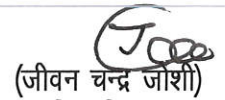 (जीवन चन्द्र जोशी)